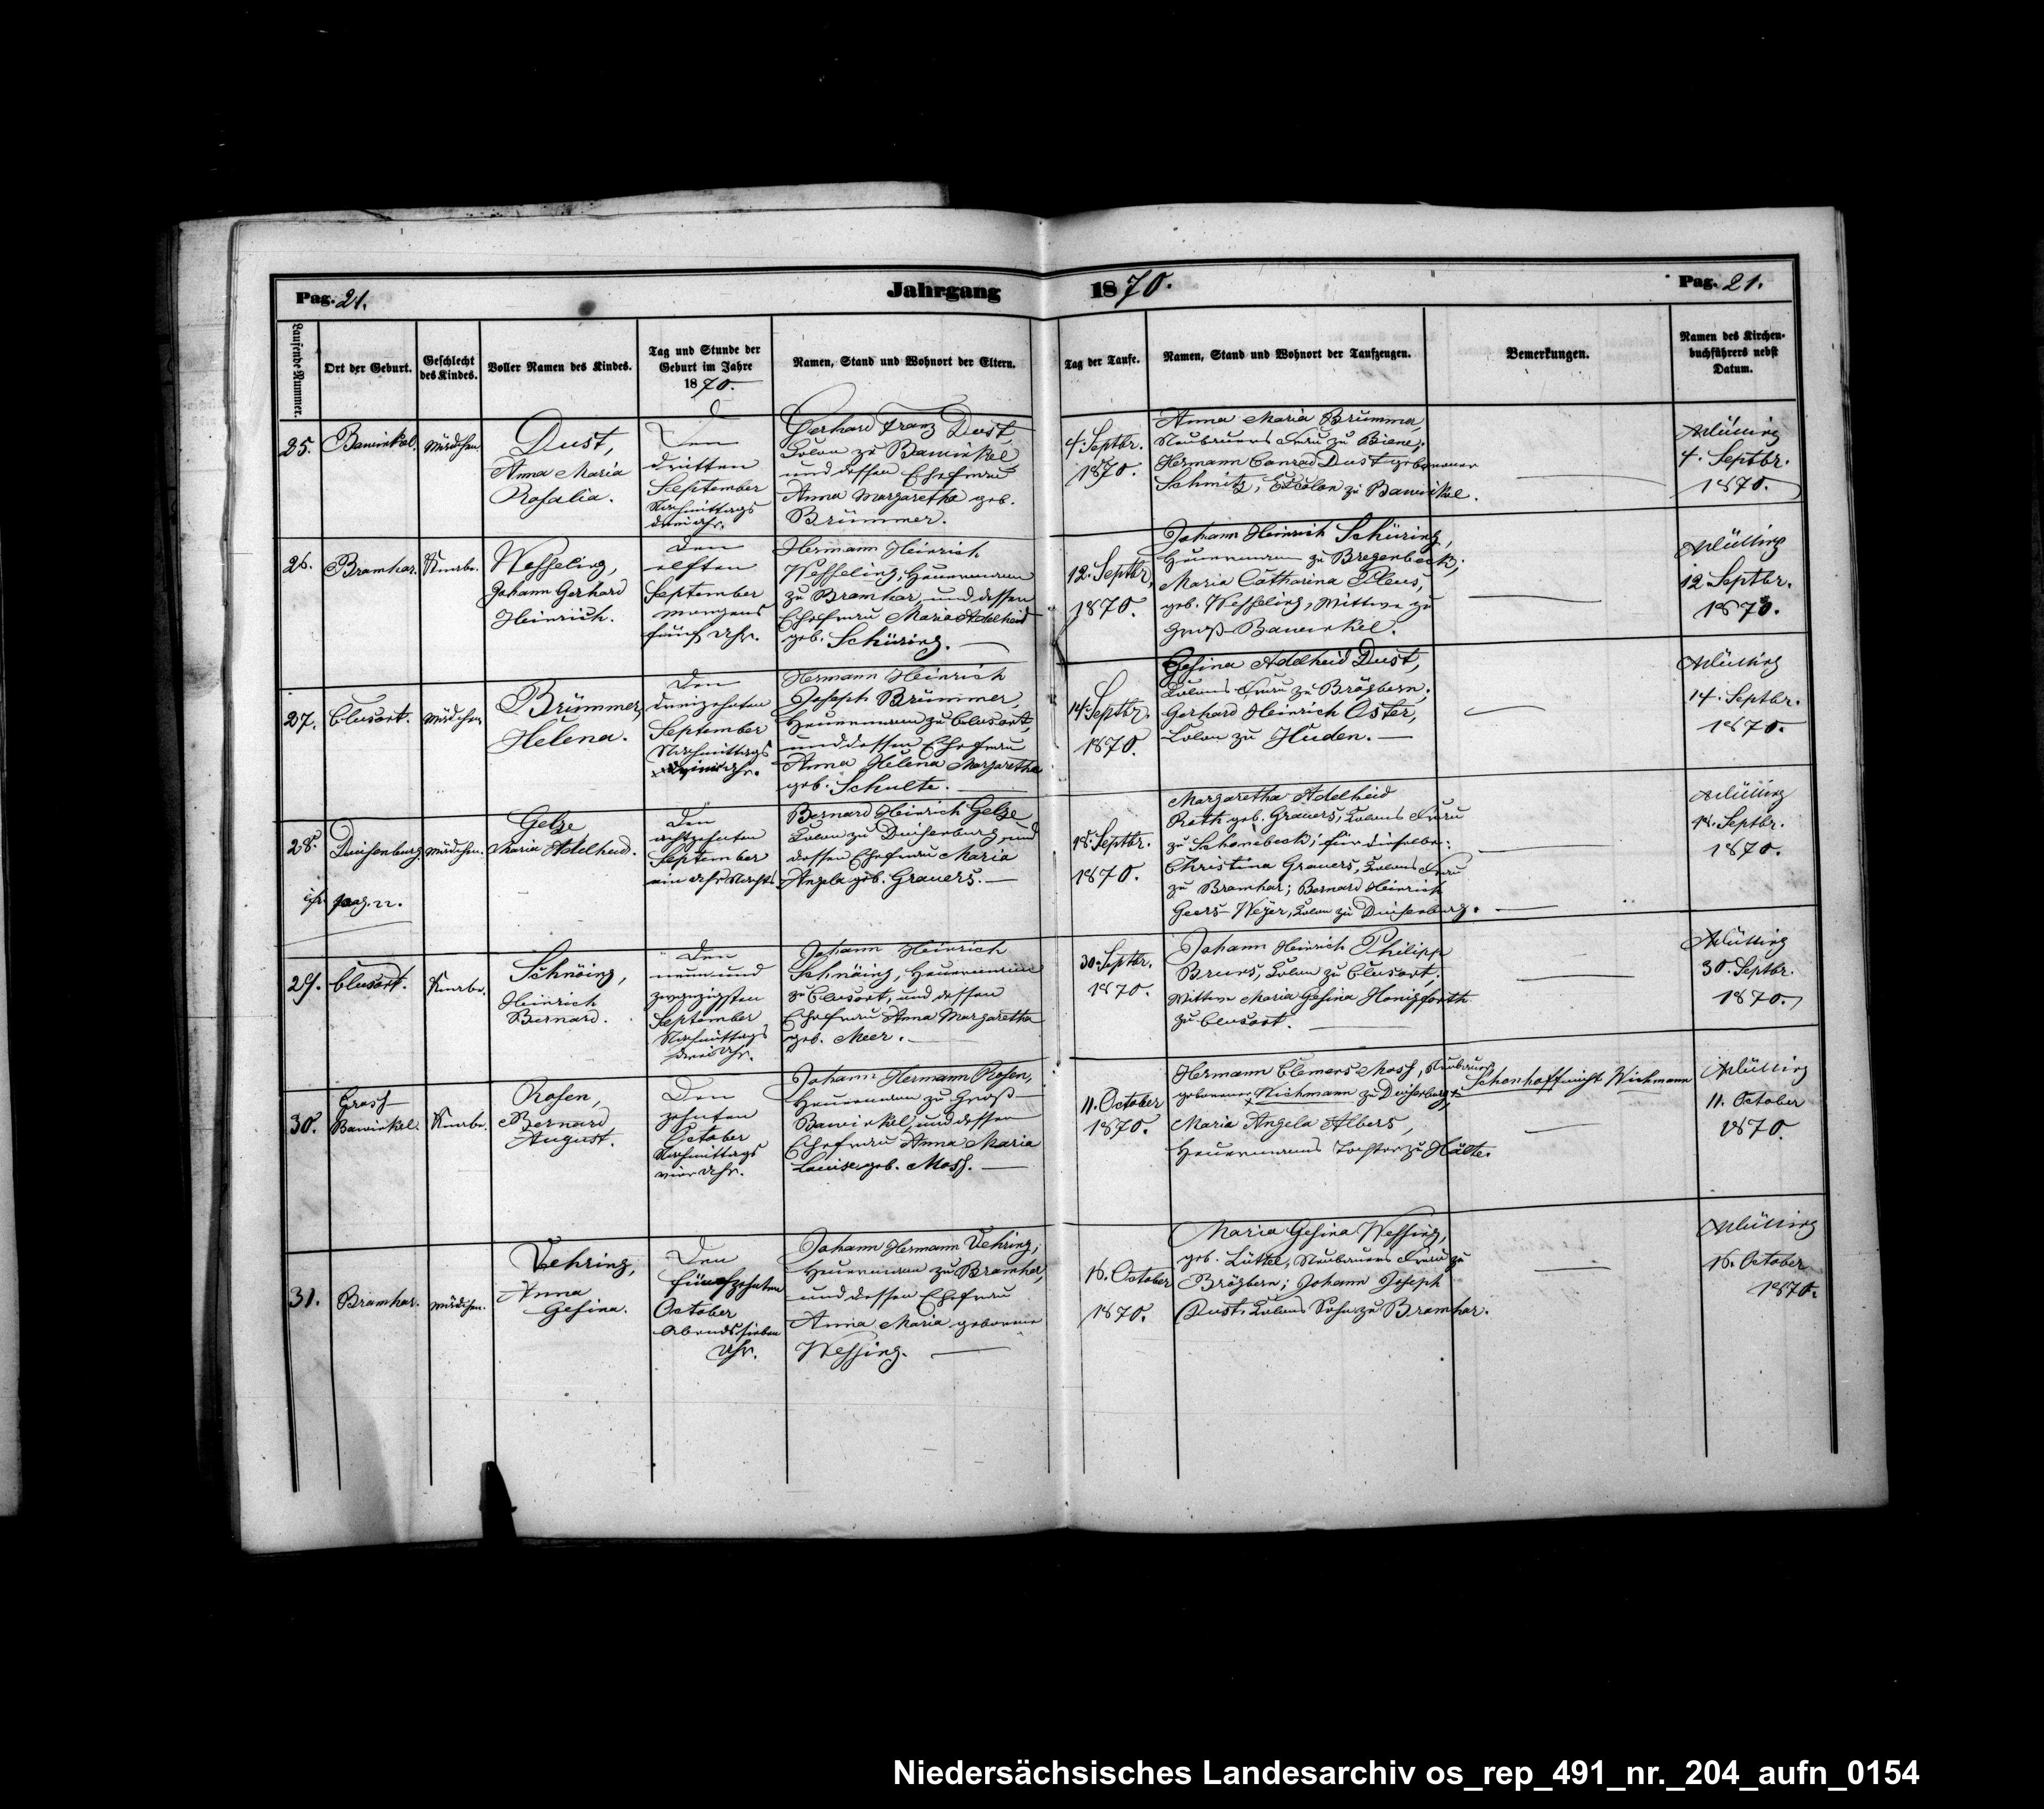 Pag. 21.
Jahrgang 1870.
Pag. 21.
Laufende Nummer.
Ort der Geburt.
Geschlecht
des Kindes.
Voller Namen des Kindes.
Tag und Stunde der
Geburt im Jahre
1870.
Namen, Stand und Wohnort der Eltern.
Tag der Taufe.
Namen, Stand und Wohnort der Taufzeugen.
Bemerkungen.
Namen des Kirchen-
buchführers nebst
Datum.
25.
Bawinkel.
Mädchen.
Dust,
Anna Maria
Rosalia.
Den
dritten
September
Nachmittags
drei Uhr.
Gerhard Franz Dust,
Colon zu Bawinkel
und dessen Ehefrau
Anna Margaretha geb.
Brümmer.
4. Septbr.
1870.
Anna Maria Brümmer,
Neubauers Frau zu Biene;
Hermann Conrad Dust geborener
Schmitz, Excolon zu Bawinkel.
4. Septbr.
1870.
26.
Bramhar.
Knabe.
Wesseling,
Johann Gerhard
Heinrich.
Den
elften
September
morgens
fünf Uhr.
Hermann Heinrich
Wesseling, Heuermann
zu Bramhar, und dessen
Ehefrau Maria Adelheid
geb. Schüring.
12. Septbr,
1870.
Johann Heinrich Schüring,
Heuermann zu Bregenbeck;
Maria Catharina Pleus,
geb. Wesseling, Wittwe zu
Groß-Bawinkel.
12 Septbr.
1870.
27.
Clusort.
Mädchen
Brümmer,
Helena.
Den
dreizehnten
September
Nachmittags
Uhr.
Hermann Heinrich
Joseph Brümmer,
Heuermann zu Clusort,
und dessen Ehefrau
Anna Helena Margaretha
geb. Schulte.
14. Septbr.
1870.
Gesina Adelheid Dust,
Colons Frau zu Brögbern;
Gerhard Heinrich Oster,
Colon zu Huden.
14. Septbr.
1870.
28.
Duisenburg.
Mädchen.
Gelze
Maria Adelheid.
Den
achtzehnten
September
ein Uhr Nachts
Bernard Heinrich Gelze
Colon zu Duisenburg, und
dessen Ehefrau Maria
Angela geb. Grauers.
18. Septbr.
1870.
Margaretha Adelheid
Roth geb. Grauers, Colons Frau
zu Schönebeck; für dieselbe:
Christina Grauers, Colons Frau
zu Bramhar; Bernard Heinrich
Geers-Weyer, Colon zu Duisenburg.
18. Septbr.
1870.
pag. 22.
29.
Clusort.
Knabe.
Schnöing,
Heinrich
Bernard.
Den
neun und
zwanzigsten
September
Nachmittags
drei Uhr.
Johann Heinrich
Schnöing, Heuermann
zu Clusort, und dessen
Ehefrau Anna Margaretha
geb. Meer.
30. Septbr.
1870.
Johann Heinrich Philipp
Bruns, Colon zu Clusort;
Wittwe Maria Gesina Honigforth
zu Clusort.
30. Septbr.
1870.
30.
Gross
Bawinkel.
Knabe.
Rosen,
Bernard
August.
Den
zehnten
October
Nachmittags
vier Uhr.
Johann Hermann Rosen,
Heuermann zu Groß-
Bawinkel, und dessen
Ehefrau Anna Maria
Louise geb. Moss.
11. October
1870.
Hermann Clemens Moss, Neubauer,
geborener Wichmann zu Duisenburg;
Maria Angela Albers,
Heuermanns Tochter zu Hälte.
Schonhoff nicht Wichmann
11. October
1870.
31.
Bramhar.
Mädchen.
Vehring,
Anna
Gesina.
Den
fünfzehnten
October
Abends sieben
Uhr.
Johann Hermann Vehring,
Heuermann zu Bramhar,
und dessen Ehefrau
Anna Maria geborene
Wessing.
16. October
1870.
Maria Gesina Wessing,
geb. Lüttel, Neubauers Frau zu
Brögbern; Johann Joseph
Dust, Colons Sohn zu Bramhar.
16. October
1870.
Niedersächsisches Landesarchiv os_rep_491_nr._204_aufn_0154